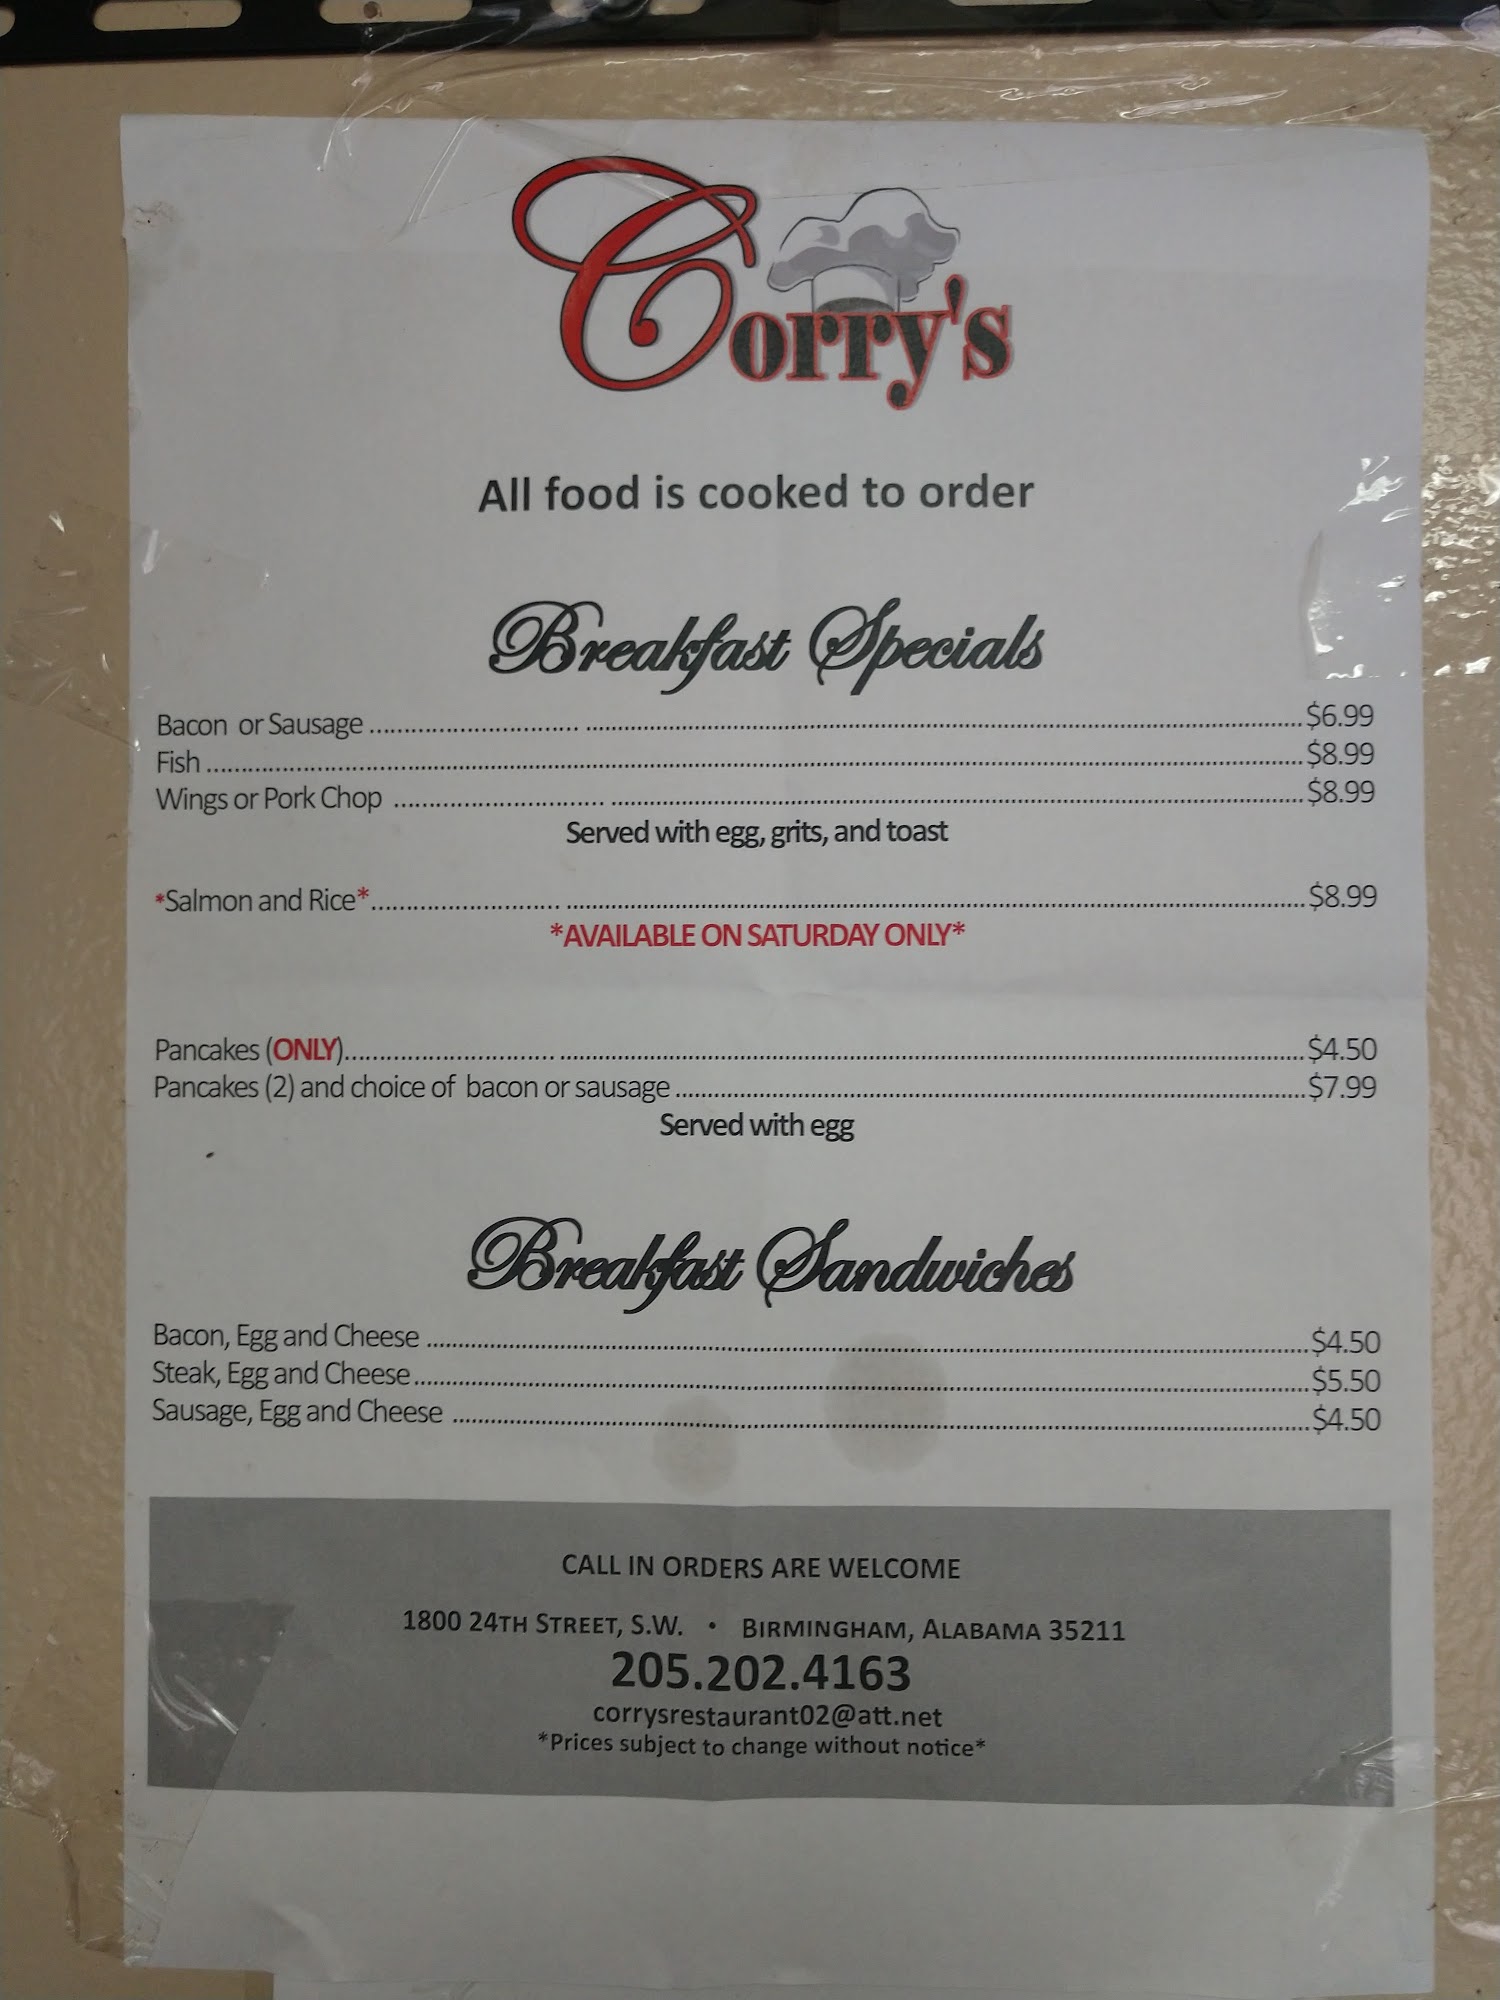 Corry's
All food is cooked to order
Breakfast Specials
Bacon or Sausage ........ $6.99
Fish ........ $8.99
Wings or Pork Chop ........ $8.99
Served with egg, grits, and toast
*Salmon and Rice* ........ $8.99
*AVAILABLE ON SATURDAY ONLY*
Pancakes (ONLY) ........ $4.50
Pancakes (2) and choice of bacon or sausage ........ $7.99
Served with egg
Breakfast Sandwiches
Bacon, Egg and Cheese ........ $4.50
Steak, Egg and Cheese ........ $5.50
Sausage, Egg and Cheese ........ $4.50
CALL IN ORDERS ARE WELCOME
1800 24TH STREET, S.W. • BIRMINGHAM, ALABAMA 35211
205.202.4163
corrysrestaurant02@att.net
*Prices subject to change without notice*